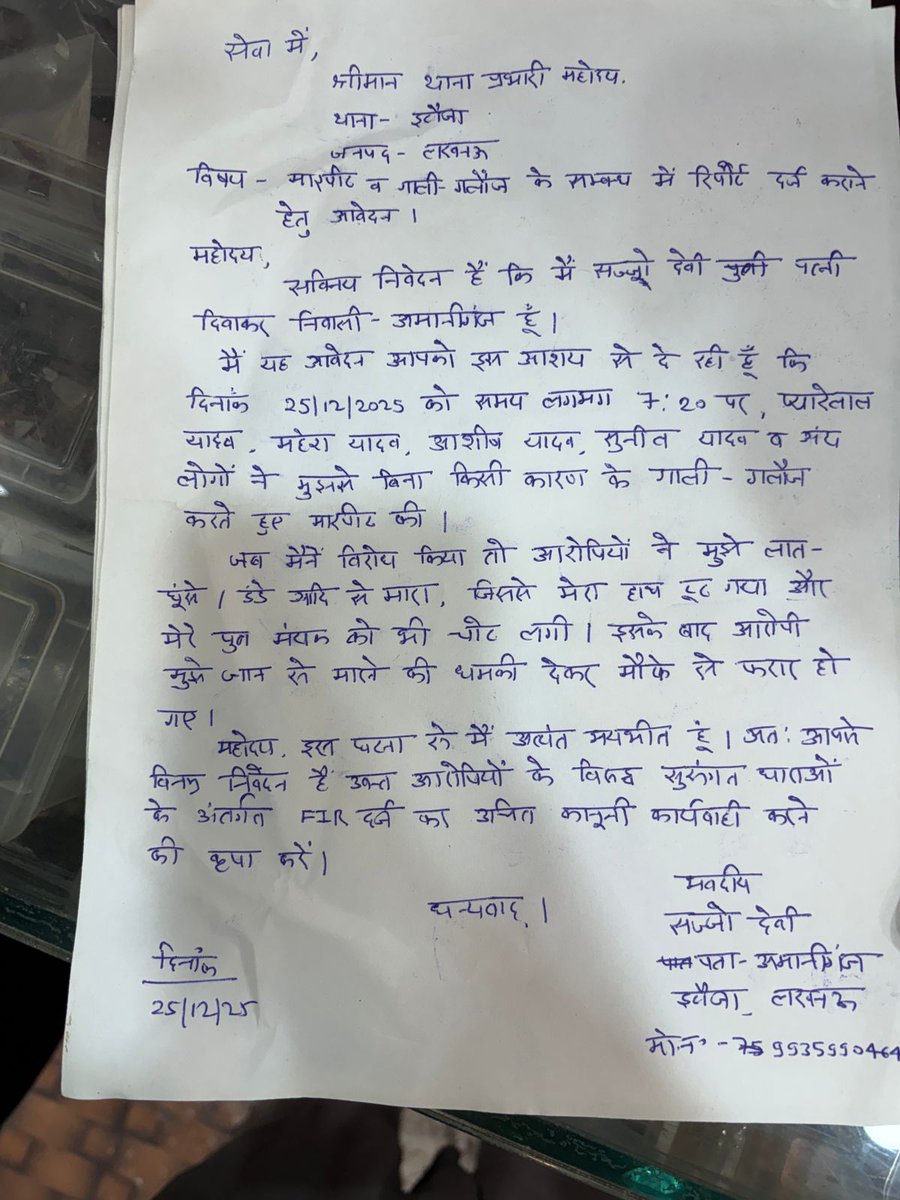 सेवा में,
श्रीमान थाना प्रभारी महोदय.
थाना- इटौंजा
जनपद- लखनऊ
विषय - मारपीट व गाली-गलौज के सम्बन्ध में रिपोर्ट दर्ज कराने
हेतु आवेदन ।
महोदय,
सविनय निवेदन हैं कि मैं सज्जो देवी पत्नी
दिवाकर निवासी - अमानीगंज हूँ ।
मैं यह आवेदन आपको इस आशय से दे रही हूँ कि
दिनांक 25/12/2025 को समय लगभग 7:20 पर, प्यारेलाल
यादव, महेश यादव, आशीष यादव, सुनील यादव व
लोगों ने मुझसे बिना किसी कारण के गाली - गलौज
करते हुए मारपीट की ।
जब मैनें विरोध किया तो आरोपियों ने मुझे लात-
घूंसे / डंडे आदि से मारा, जिससे मेरा हाथ टूट गया और
मेरे पुत्र मयंक को भी चोट लगी । इसके बाद आरोपी
मुझे जान से मारने की धमकी देकर मौके से फरार हो
गए ।
महोदय, इस घटना से मैं अत्यंत भयभीत हूं । अतः आपसे
विनम्र निवेदन हैं उक्त आरोपियों के विरुद्ध सुसंगत धाराओं
के अंतर्गत FIR दर्ज कर उचित कानूनी कार्यवाही करने
की कृपा करें ।
धन्यवाद ।
भवदीय
सज्जो देवी
पता- अमानीगंज
इटौंजा, लखनऊ
मो०न० - 9935990464
दिनांक
25/12/25